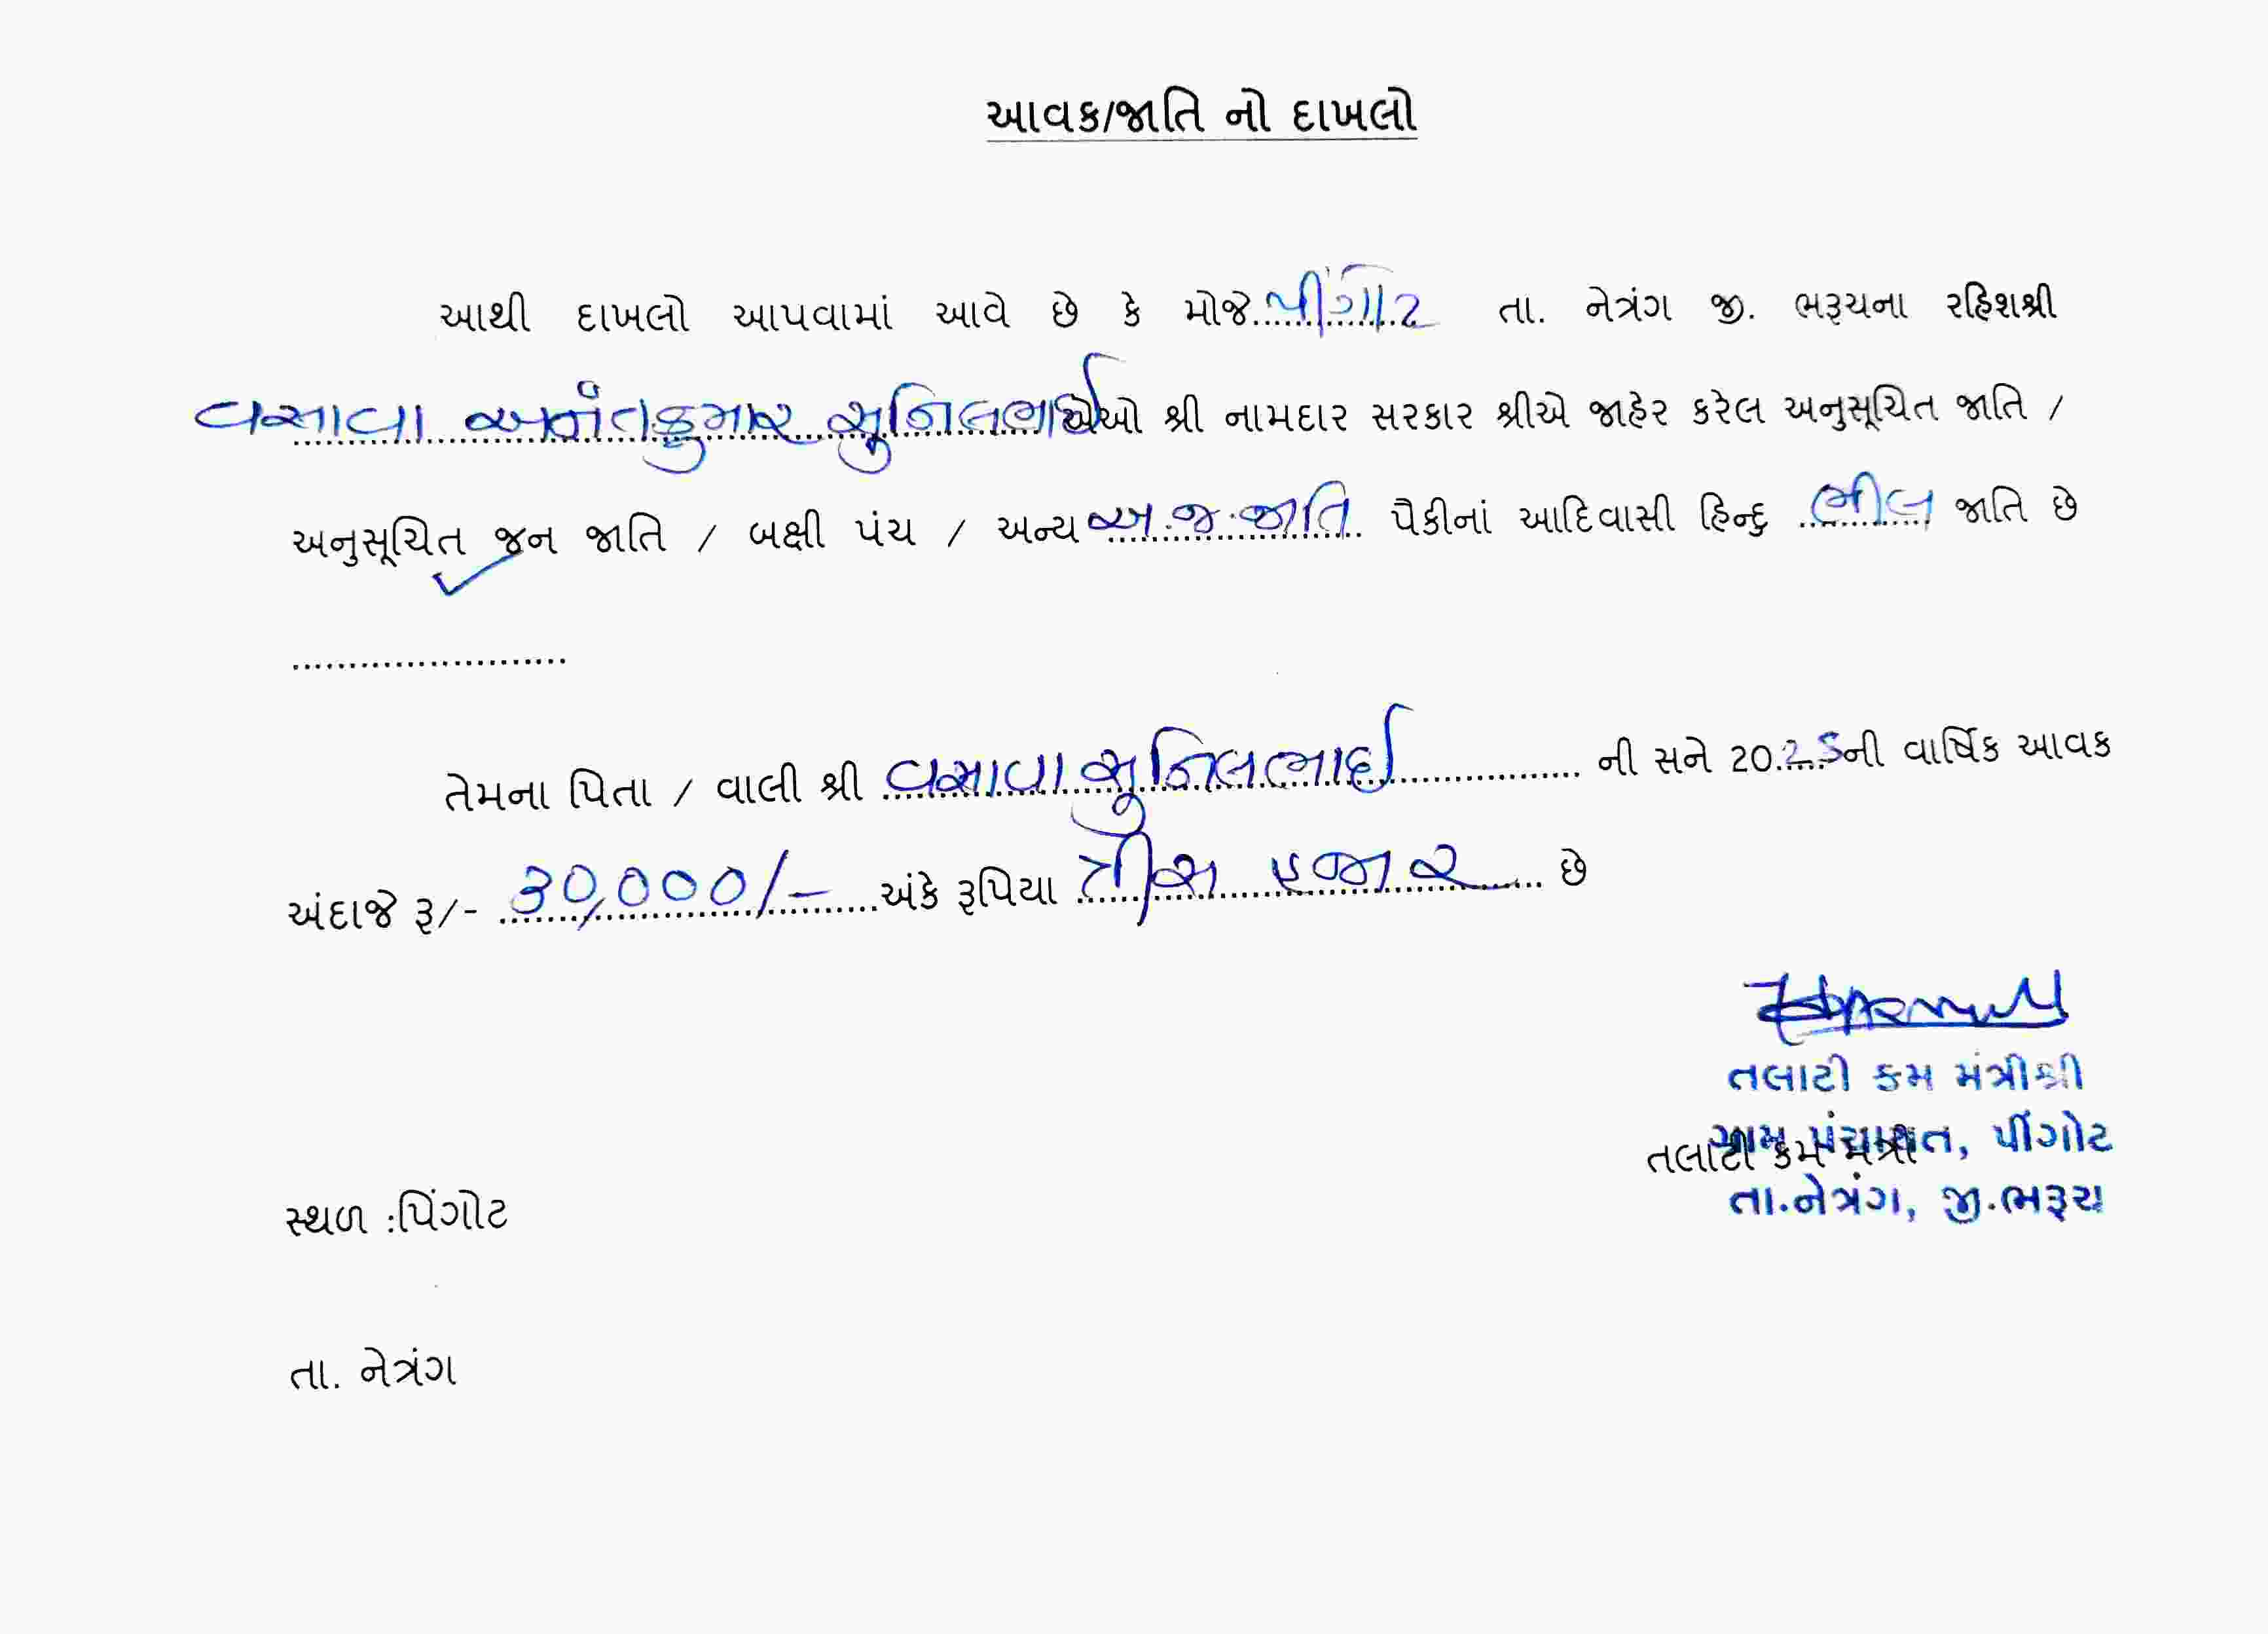 આવક/જાતિ નો દાખલો
આથી દાખલો આપવામાં આવે છે કે મોજે પીંગોટ તા. નેત્રંગ જી. ભરૂચના રહિશશ્રી
વસાવા અનંતકુમાર સુનિલભાઈ તેઓ શ્રી નામદાર સરકાર શ્રીએ જાહેર કરેલ અનુસૂચિત જાતિ /
અનુસૂચિત જન જાતિ / બક્ષી પંચ / અન્ય અ.જ.જાતિ પૈકીનાં આદિવાસી હિન્દુ ભીલ જાતિ છે
........................
તેમના પિતા / વાલી શ્રી વસાવા સુનિલભાઈ ની સને 2025ની વાર્ષિક આવક
અંદાજે રૂ/- 30,000/- અંકે રૂપિયા ત્રીસ હજાર છે
તલાટી કમ મંત્રીશ્રી
ગ્રામ પંચાયત, પીંગોટ
તલાટી કમ મંત્રી
તા.નેત્રંગ, જી.ભરૂચ
સ્થળ :પિંગોટ
તા. નેત્રંગ